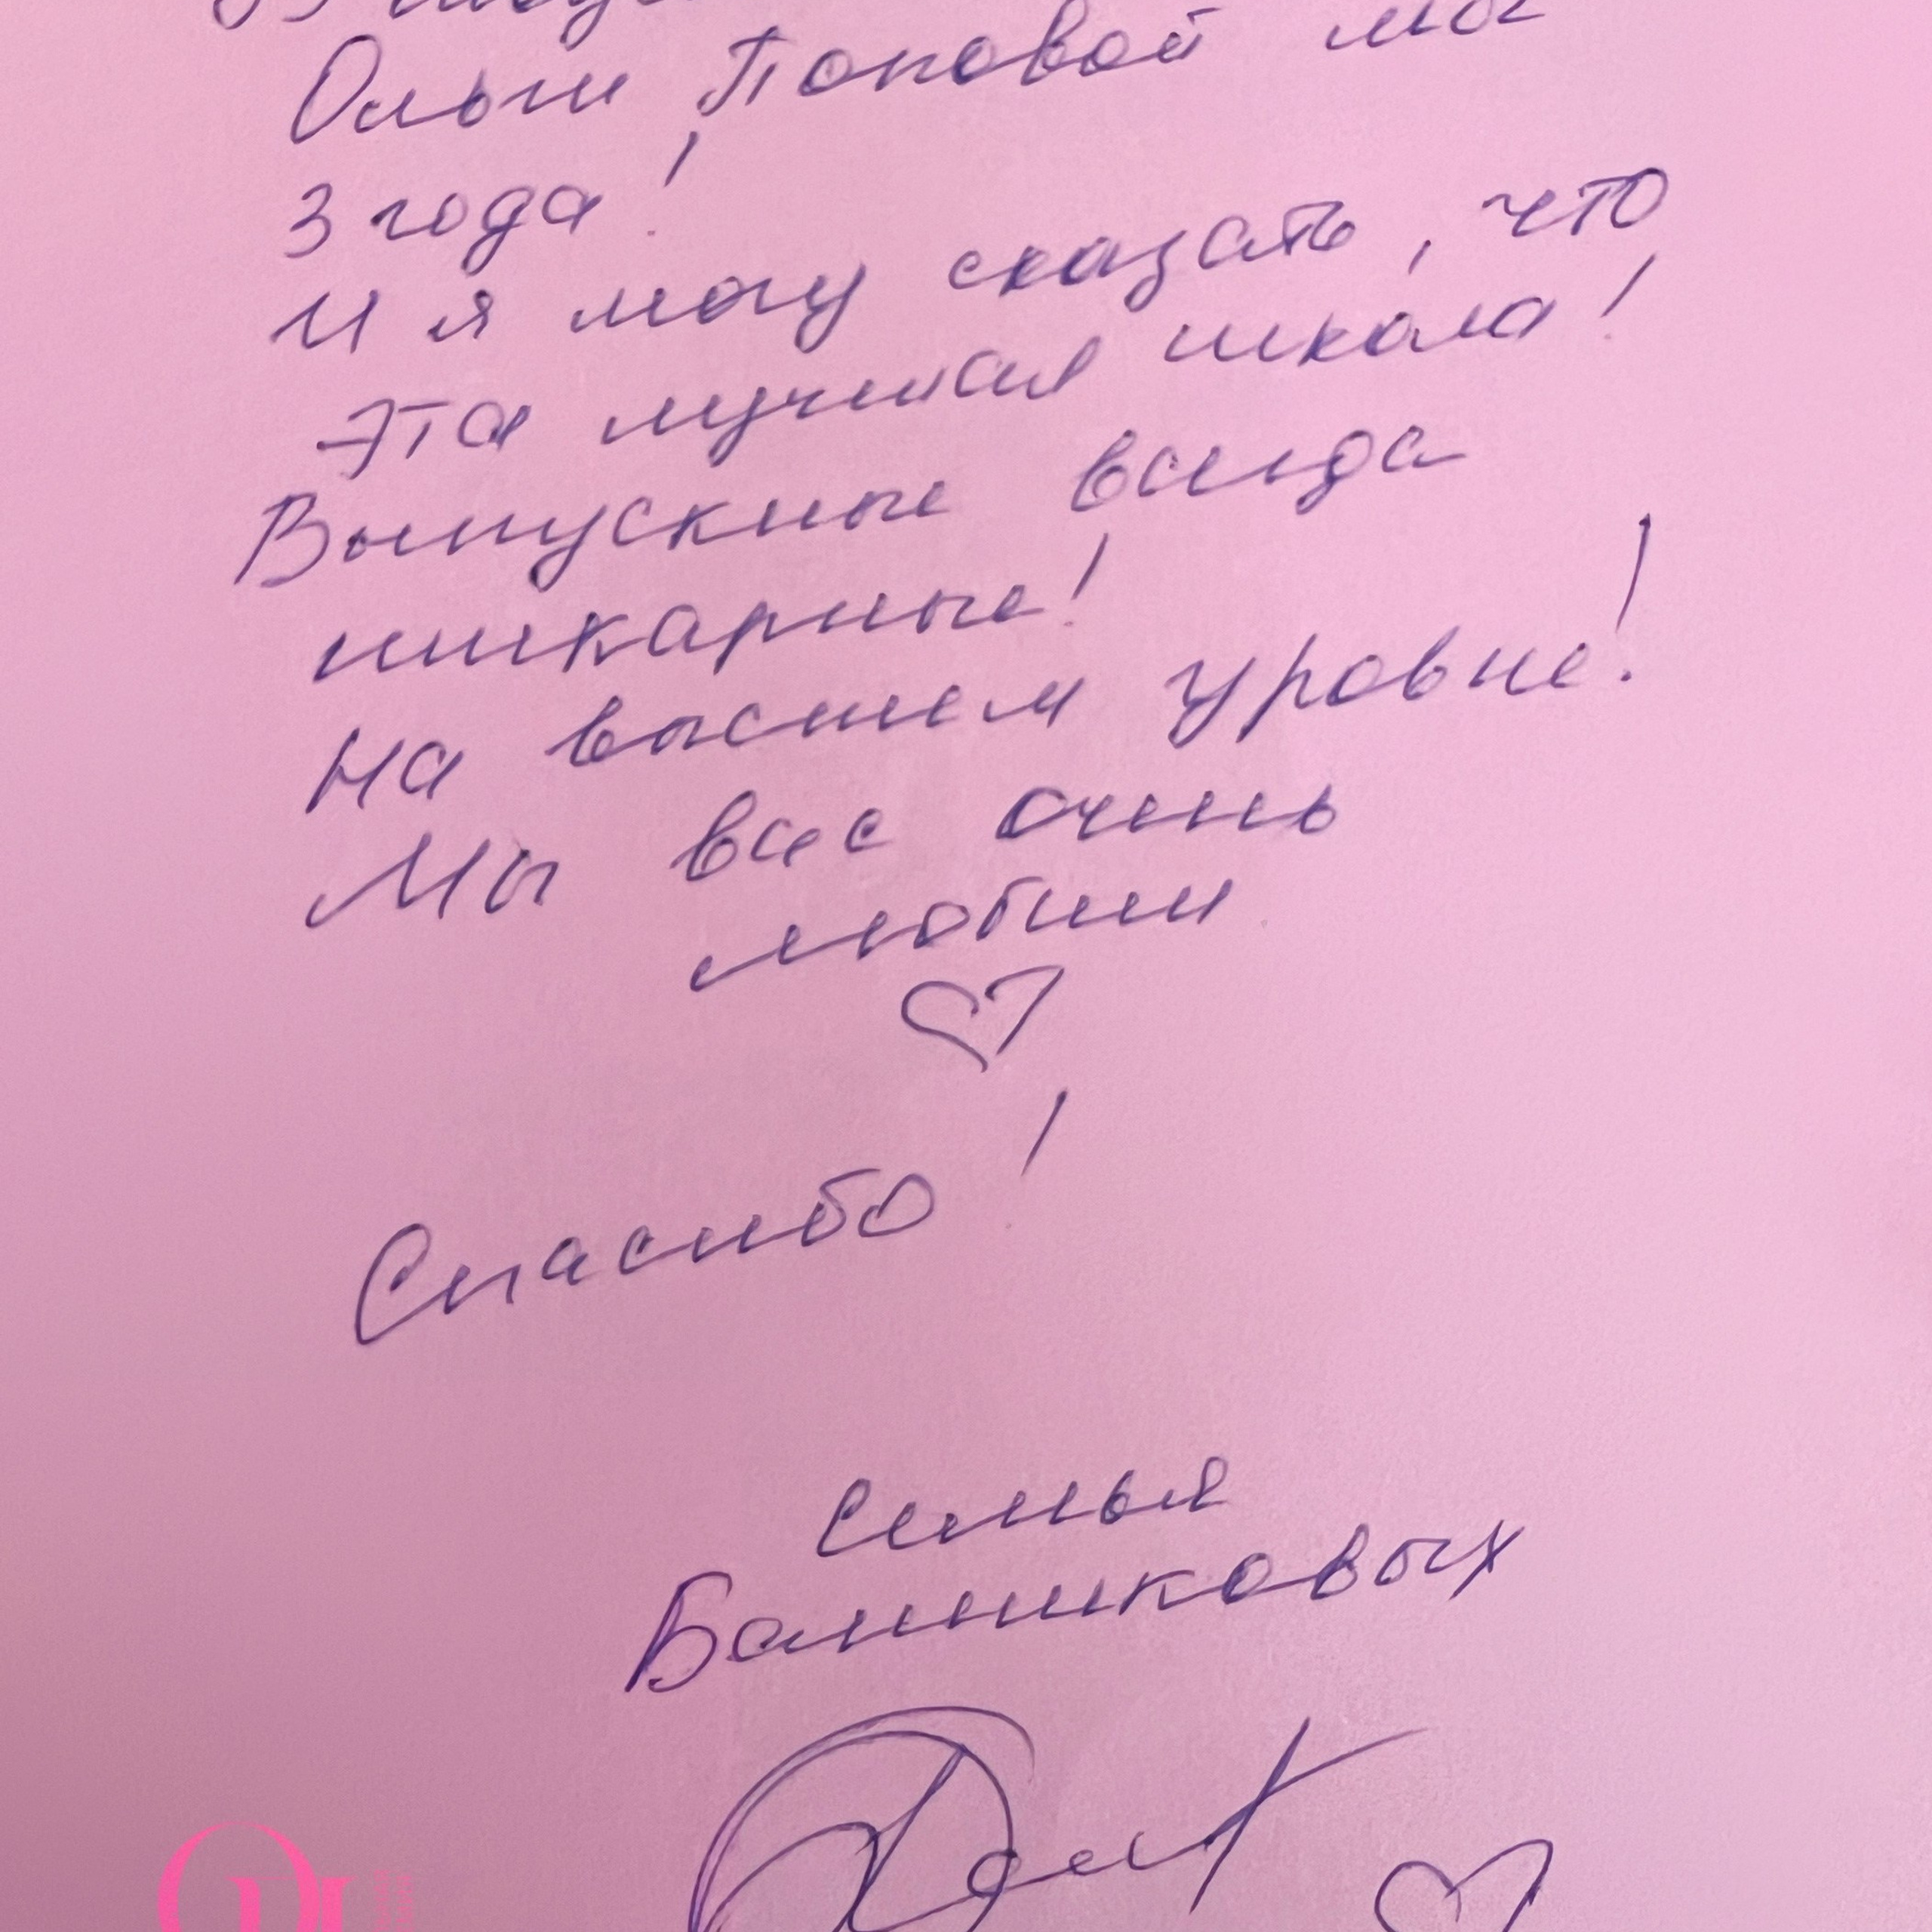 Ольги Поповой мы
3 года!
И я могу сказать, что
Эта лучшая школа!
Выпускные всегда
шикарные!
На высшем уровне!
Мы вас очень
любим
♡
Спасибо!
Семья
Банниковых